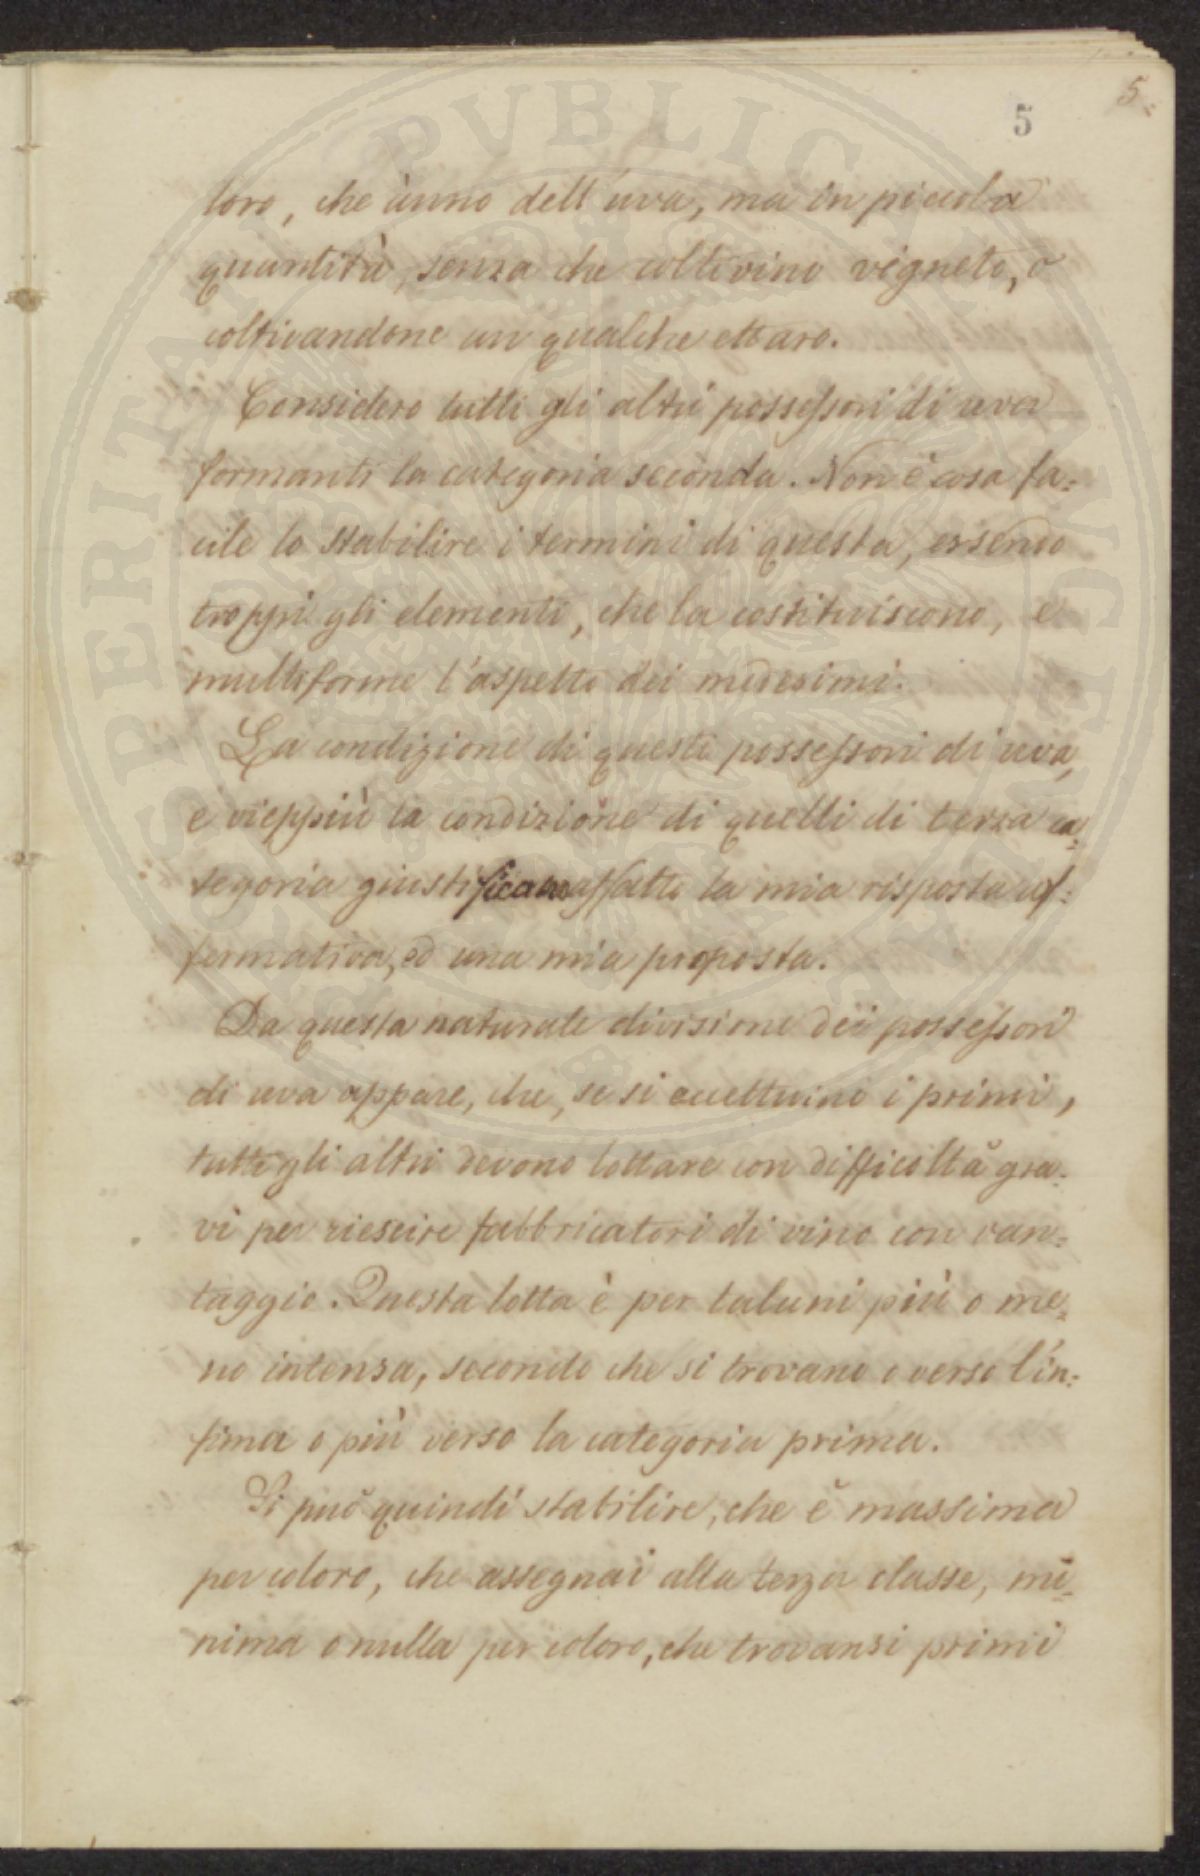 5
5.
loro, che ànno dell'uva, ma in piccola
quantità, senza che coltivino vigneto, o
coltivandone un qualche ettaro.
Considero tutti gli altri possessori di uva
formanti la categoria seconda. Non è cosa fa=
cile lo stabilire i termini di questa, essendo
troppi gli elementi, che la costituiscono, e
multiforme l'aspetto dei medesimi.
La condizione di questi possessori di uva,
e vieppiù la condizione di quelli di terza ca=
tegoria giustificano affatto la mia risposta af=
fermativa, ed una mia proposta.
Da questa naturale divisione dei possessori
di uva appare, che, se si eccettuino i primi,
tutti gli altri devono lottare con difficoltà gra=
vi per riescire fabbricatori di vino con van=
taggio. Questa lotta è per taluni più o me=
no intensa, secondo che si trovano o verso l'in=
fima o più verso la categoria prima.
Si può quindi stabilire, che è massima
per coloro, che assegnai alla terza classe, mi=
nima o nulla per coloro, che trovansi primi
PUBLICAE
PROSPERITATI
AUGENDAE